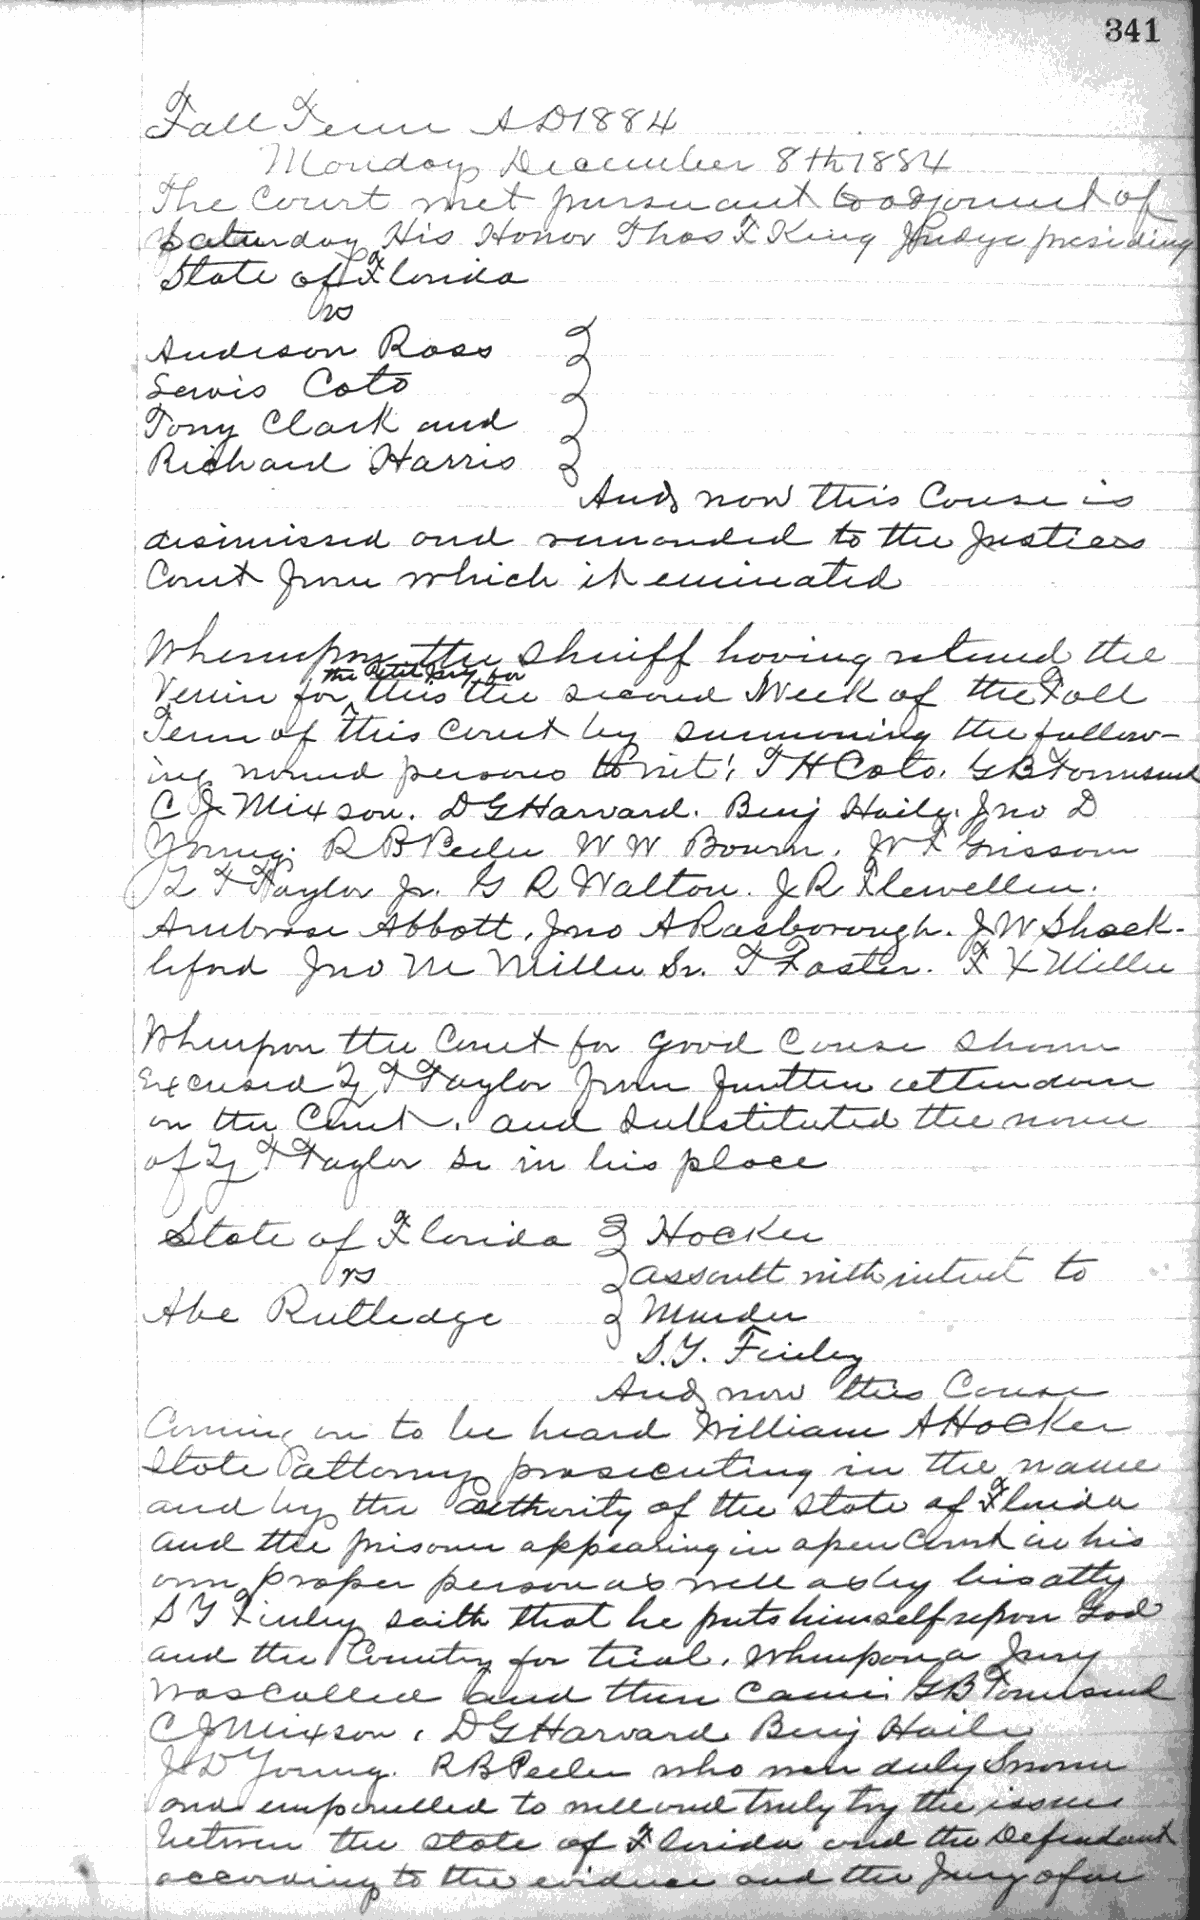 341
Fall Term AD 1884
Monday December 8th 1884
The Court met pursuant to adjournmt of
Saturday His Honor Thos F King Judge presiding
State of Florida
vs
Anderson Ross
Lewis Cato
Tony Clark and
Richard Harris
And now this Cause is
dismissed and remanded to the Justices
Court from which it eminated
Whereupon the Sheriff having returned the
the Petit Jury for
Venire for this the second Week of the Fall
Term of this Court by summoning the follow-
ing named persons to wit: T H Cato. G B Townsend
C J Mixson. D G Harvard. Benj Haile. Jno D
Young. R B Peeler W W Bourn. W F Grissom
T Taylor Jr. G R Walton. J R Flewellen.
Ambrose Abbott, Jno A Rasborough. J W Shack-
leford Jno M Miller Sr. T Foster. F X Miller
Whereupon the Court for good Cause shown
Excused T Taylor from further attendance
on the Court, and substituted the name
of T Taylor Sr in his place
State of Florida Hocker
vs assault with intent to
Abe Rutledge Murder
S.Y. Finley
And now this Cause
Coming on to be heard William A Hocker
State Attorney prosecuting in the name
and by the authority of the State of Florida
and the prisoner appearing in open Court in his
own proper person as well as by his atty
S Y Finley saith that he puts himself upon God
and the Country for trial, Whereupon a Jury
was called and then came G B Townsend
C J Mixson, D G Harvard Benj Haile
J D Young. R B Peeler who were duly Sworn
and empanelled to well and truly try the issue
between the State of Florida and the Defendant
according to the evidence and the Jury